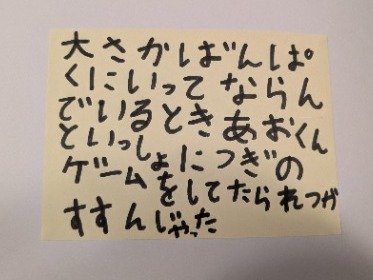 大さかばんぱ
くにいって ならん
でいるとき あおくん
といっしょにつぎの
ゲームをしてたられつが
すすんじゃった